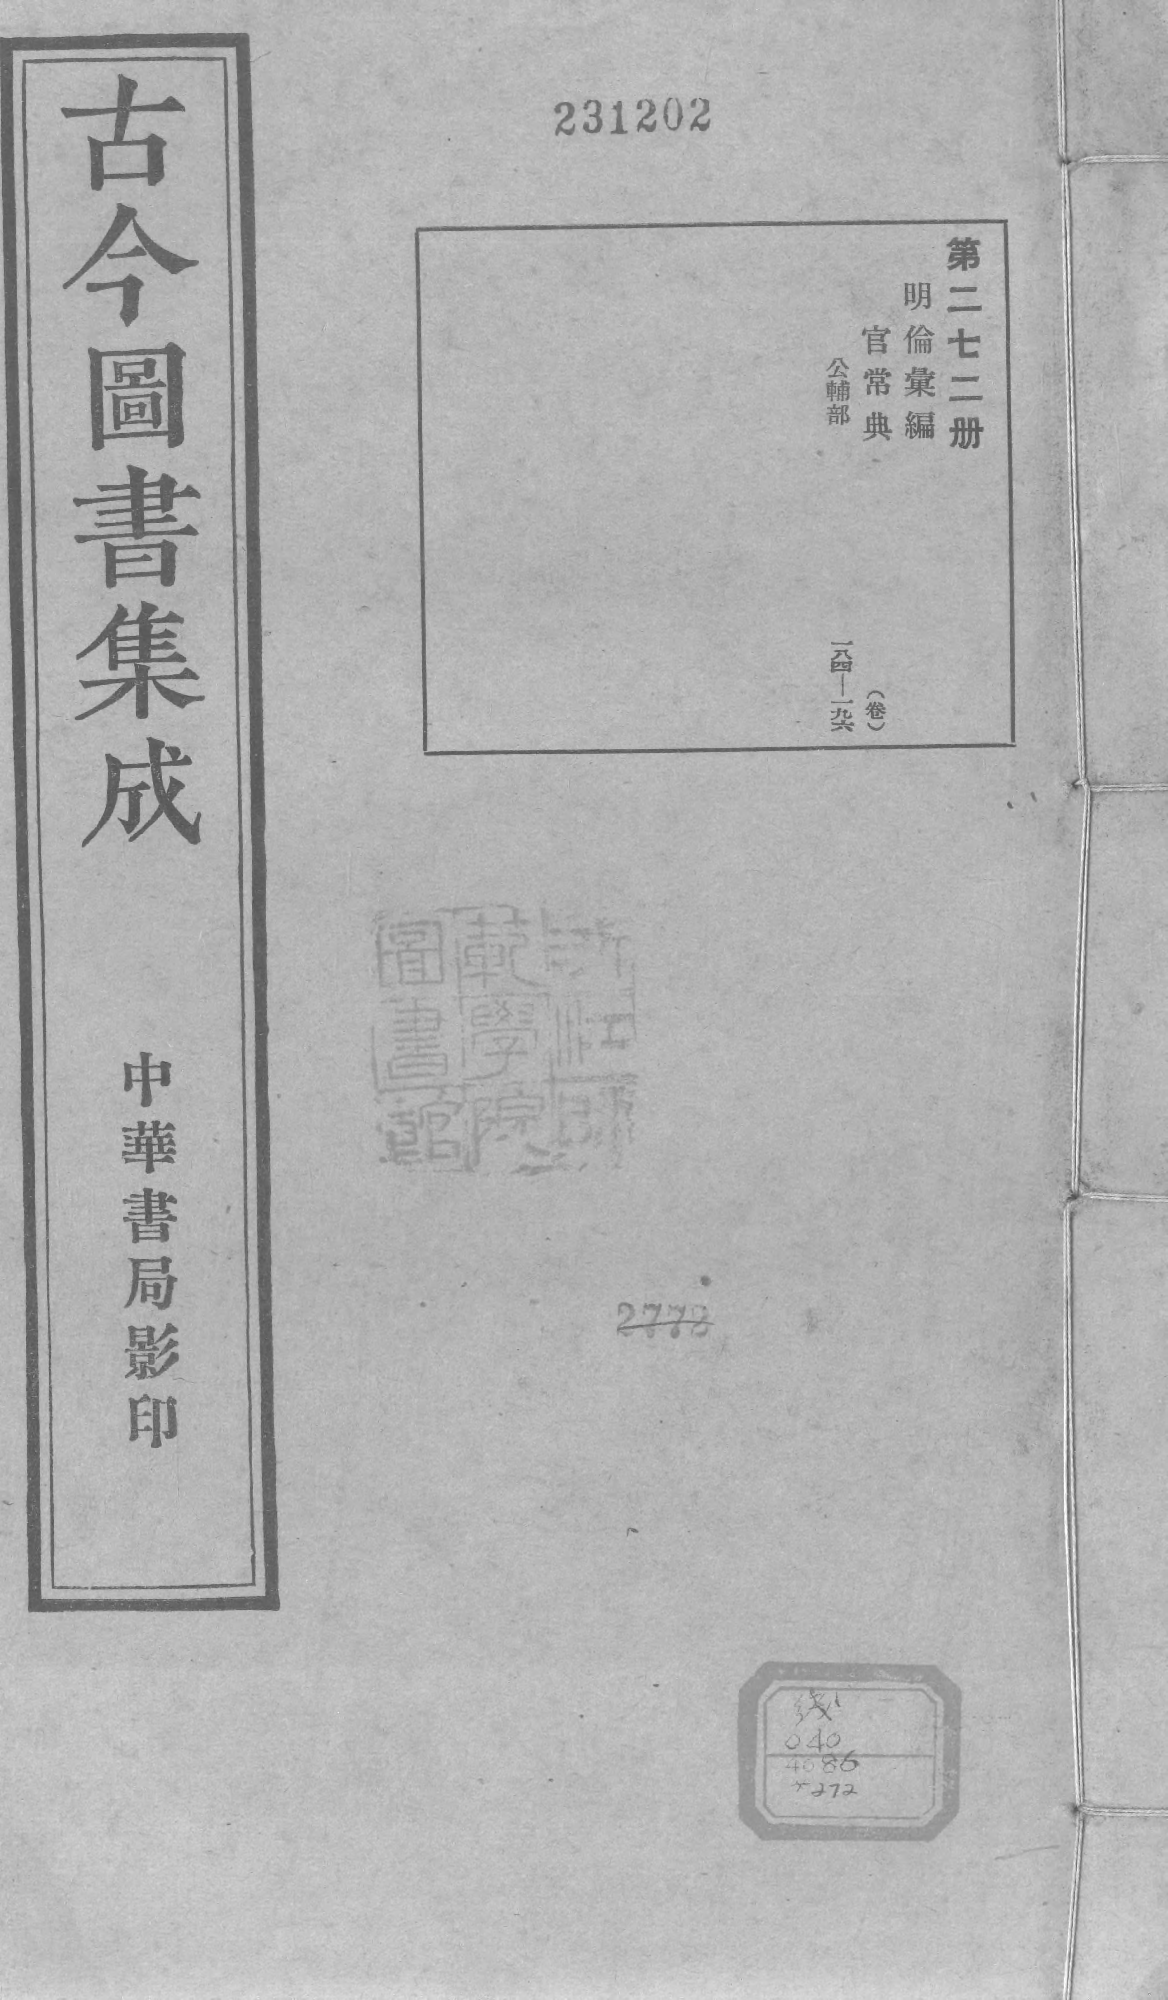 231202
第二七二册
明倫彙編
官常典
公輔部
(卷)
一八四—一九六
古今圖書集成
中華書局影印
浙江師
範學院
圖書館
2773
线
040
4086
272